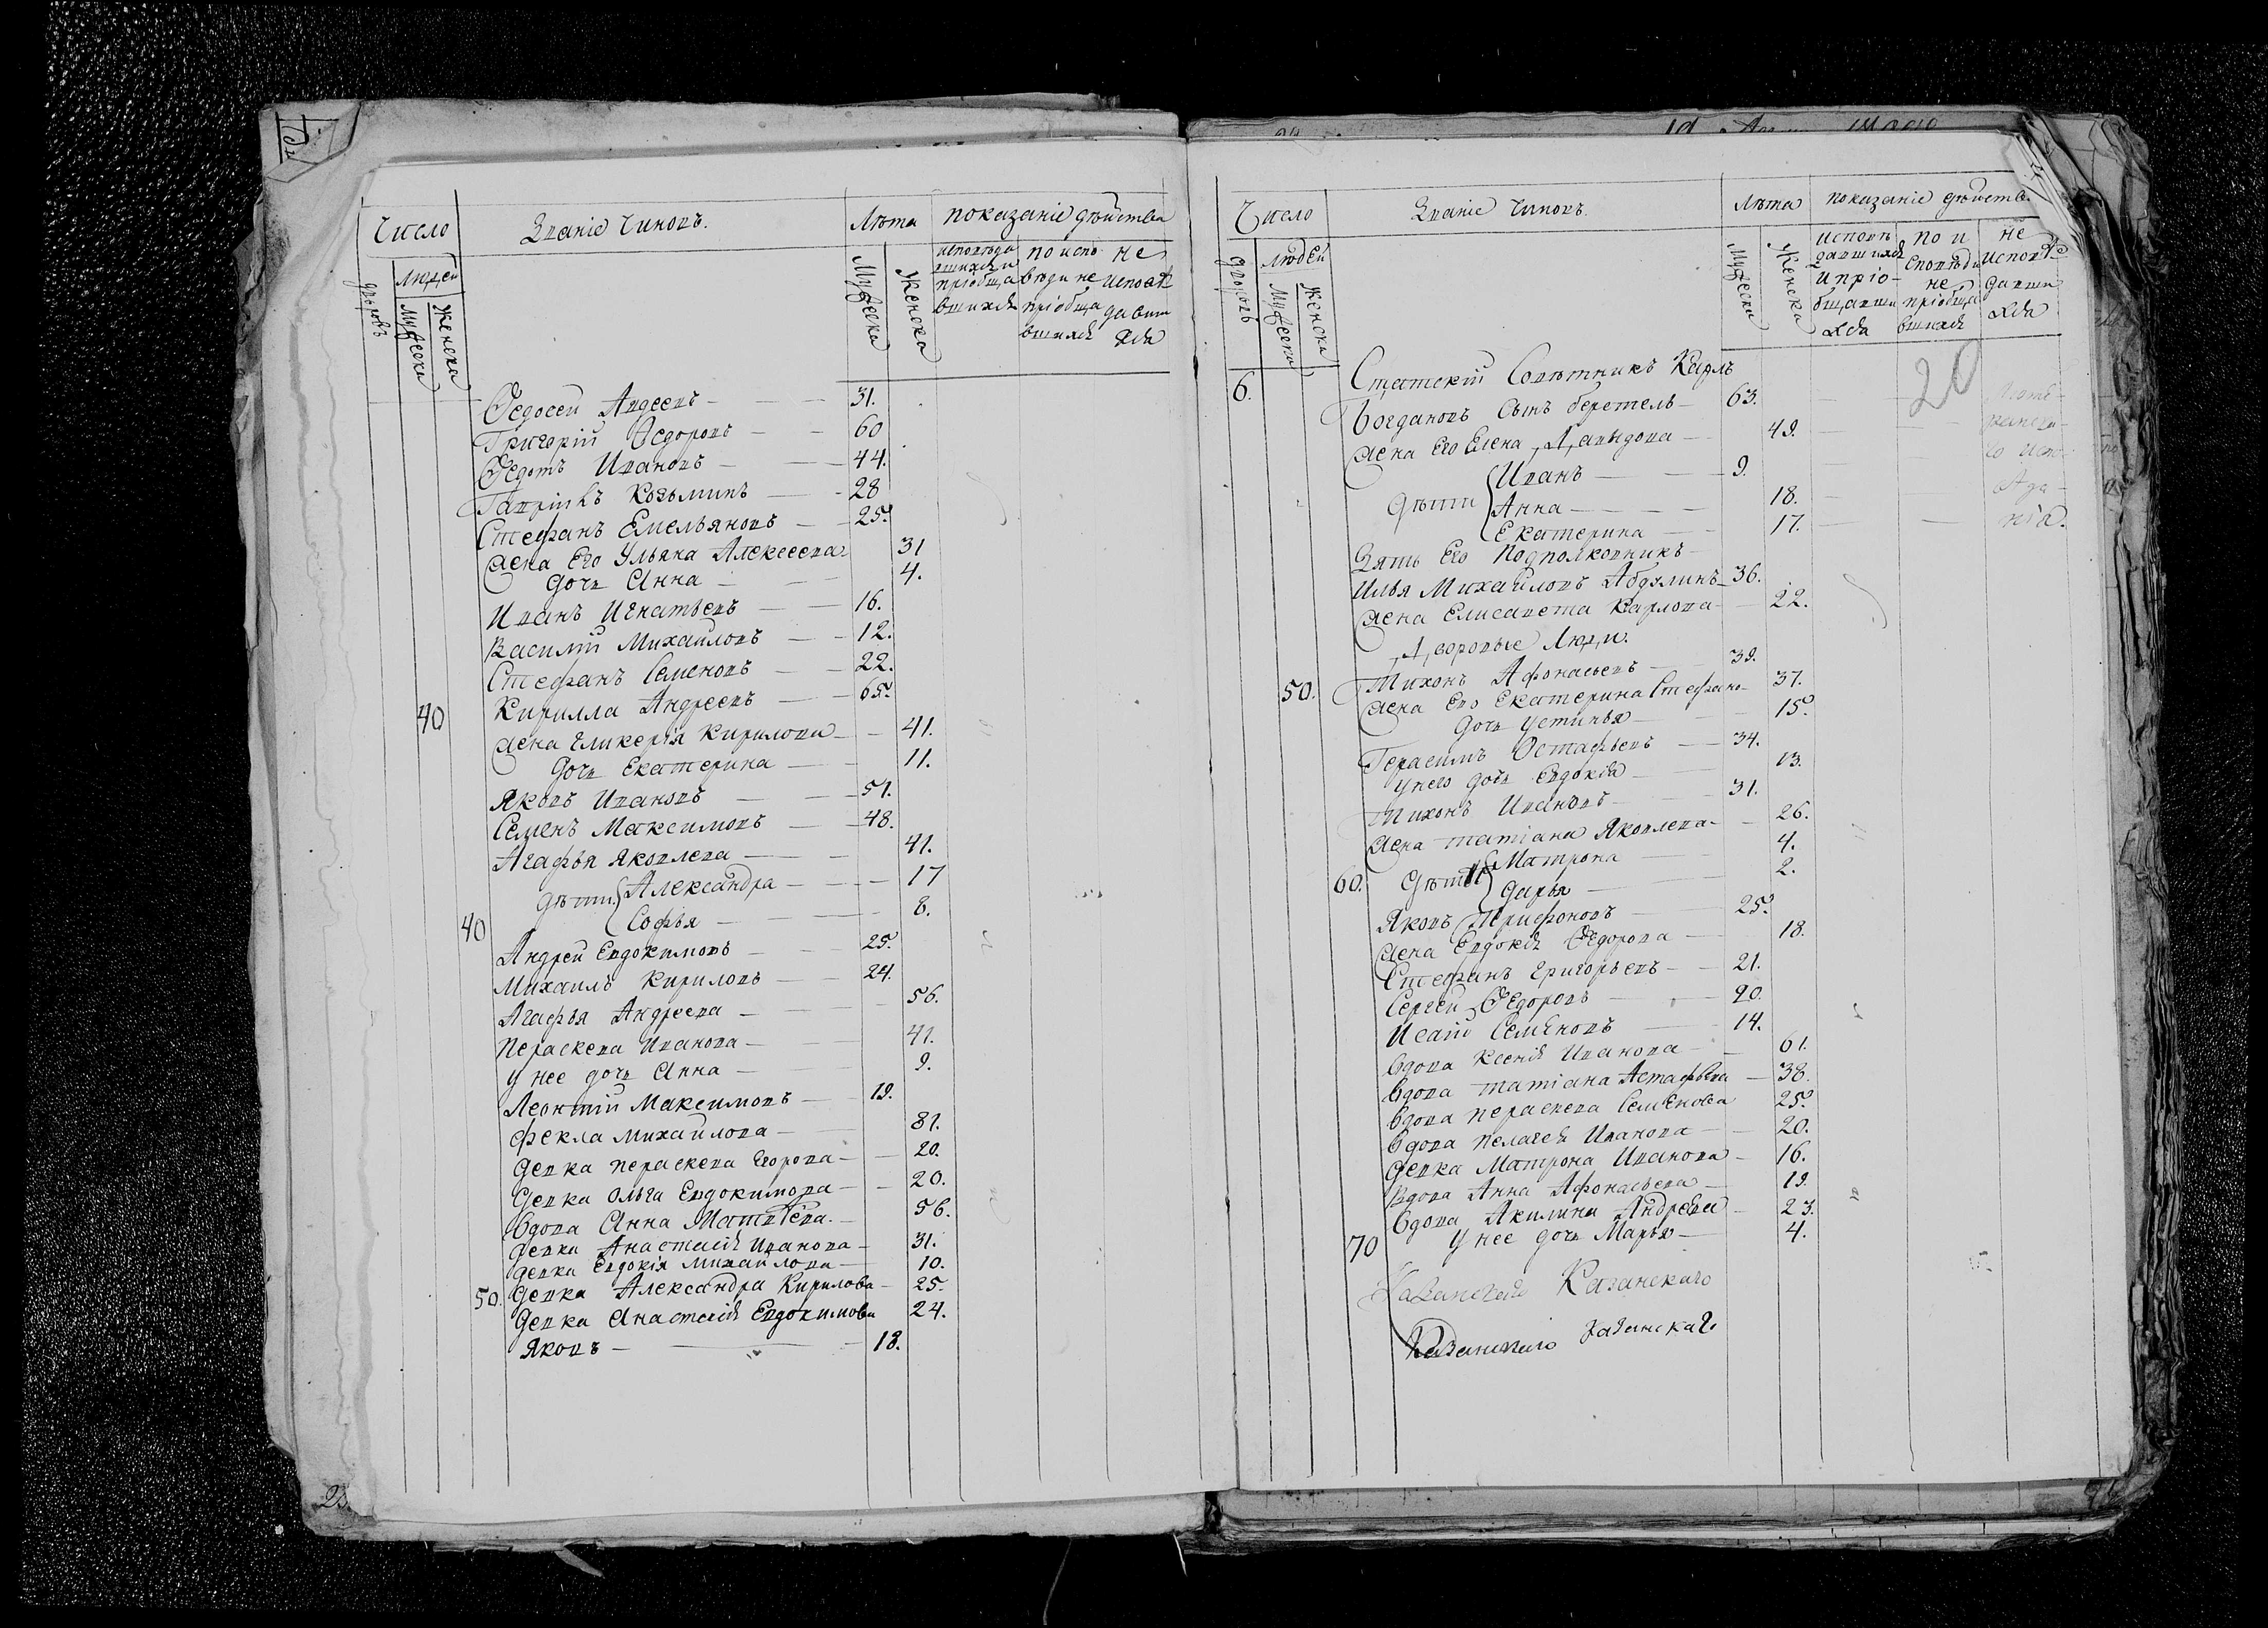 Число
Званіе чиновъ.
Лѣта
показаніе дѣйства
дворовъ
Людей
Мужеска
Женска
Мужеска
Женска
исповѣда
вшихся и
пріобща
вшихся
по испо
вѣди не
пріобща
вшихся
не
исповѣ
давши
хся
Федосей Авдеевъ — 31.
Григорій Федоровъ — 60
Федотъ Ивановъ — 44.
Гаврилъ Козьминъ — 28
Стефанъ Емельяновъ — 25.
Жена Его Ульяна Алексеева 31
дочь Анна — 4.
Иванъ Игнатьевъ — 16.
Василій Михайловъ — 12.
Стефанъ Семеновъ — 22.
40 Кирилла Андреевъ — 65.
Жена Гликерія Кирилова — 41.
дочь Екатерина — 11.
Яковъ Ивановъ — 51.
Семенъ Максимовъ — 48.
Агафья Яковлева — 41.
дѣти Александра — 17
40 Софья — 8.
Андрей Евдокимовъ — 25.
Михаилъ Кириловъ — 24.
Агафья Андреева — 56.
Параскева Иванова — 41.
у нее дочь Анна — 9.
Леонтій Максимовъ — 19.
Фекла Михайлова — 81.
девка Параскева Егорова — 20.
девка Ольга Евдокимова — 20.
вдова Анна Матвѣева — 56.
девка Анастасія Иванова — 31.
девка Евдокія Михайлова — 10.
50. девка Александра Кирилова — 25.
девка Анастасія Евдокимова 24.
Яковъ — 18.
Число
Званіе чиновъ.
Лѣта
показаніе дѣйств.
дворовъ
Людей
Мужеска
Женска
Мужеска
Женска
исповѣ
давшихся
и пріо-
бщавши
хся
по и
сповѣди
не
пріобща
вшихся
не
исповѣ
давши
хся
6. Статскій Совѣтникъ Карлъ
20
Богдановъ сынъ беретель — 63.
Жена Его Елена Давыдова — 49.
дѣти Иванъ — 9.
Анна — 18.
Екатерина — 17.
нія.
Зять Его Подполковникъ
Илья Михайловъ Абдулинъ — 36.
Жена Елисавета Карлова — 22.
Дворовые Люди.
50. Тихонъ Афонасьевъ — 39.
Жена Его Екатерина Стефано- 37.
дочь Устинья — 15.
Герасимъ Остафьевъ — 34.
у него дочь Евдокія — 13.
Тихонъ Ивановъ — 31.
Жена Татіана Яковлева — 26.
дѣти Матрона — 4.
60. Дарья — 2.
Яковъ Трифоновъ — 25.
Жена Евдокія Федорова — 18.
Стефанъ Григорьевъ — 21.
Сергей Федоровъ — 20.
Исаій Семеновъ — 14.
вдова Ксенія Иванова — 61.
вдова Татіана Астафьева — 38.
вдова Параскева Семенова 25.
вдова Пелагея Иванова — 20.
девка Матрона Иванова — 16.
вдова Анна Афонасьева — 19.
вдова Акилина Андреева — 23.
70 у нее дочь Марья — 4.
Казанскаго
Казанскаго Казанскаго